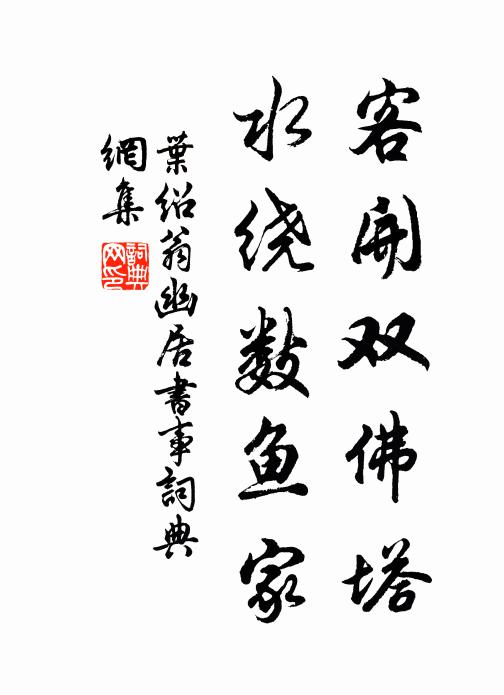 客开双佛塔
水绕数鱼家
葉绍翁幽居書事詞典
網集
詞典
网印